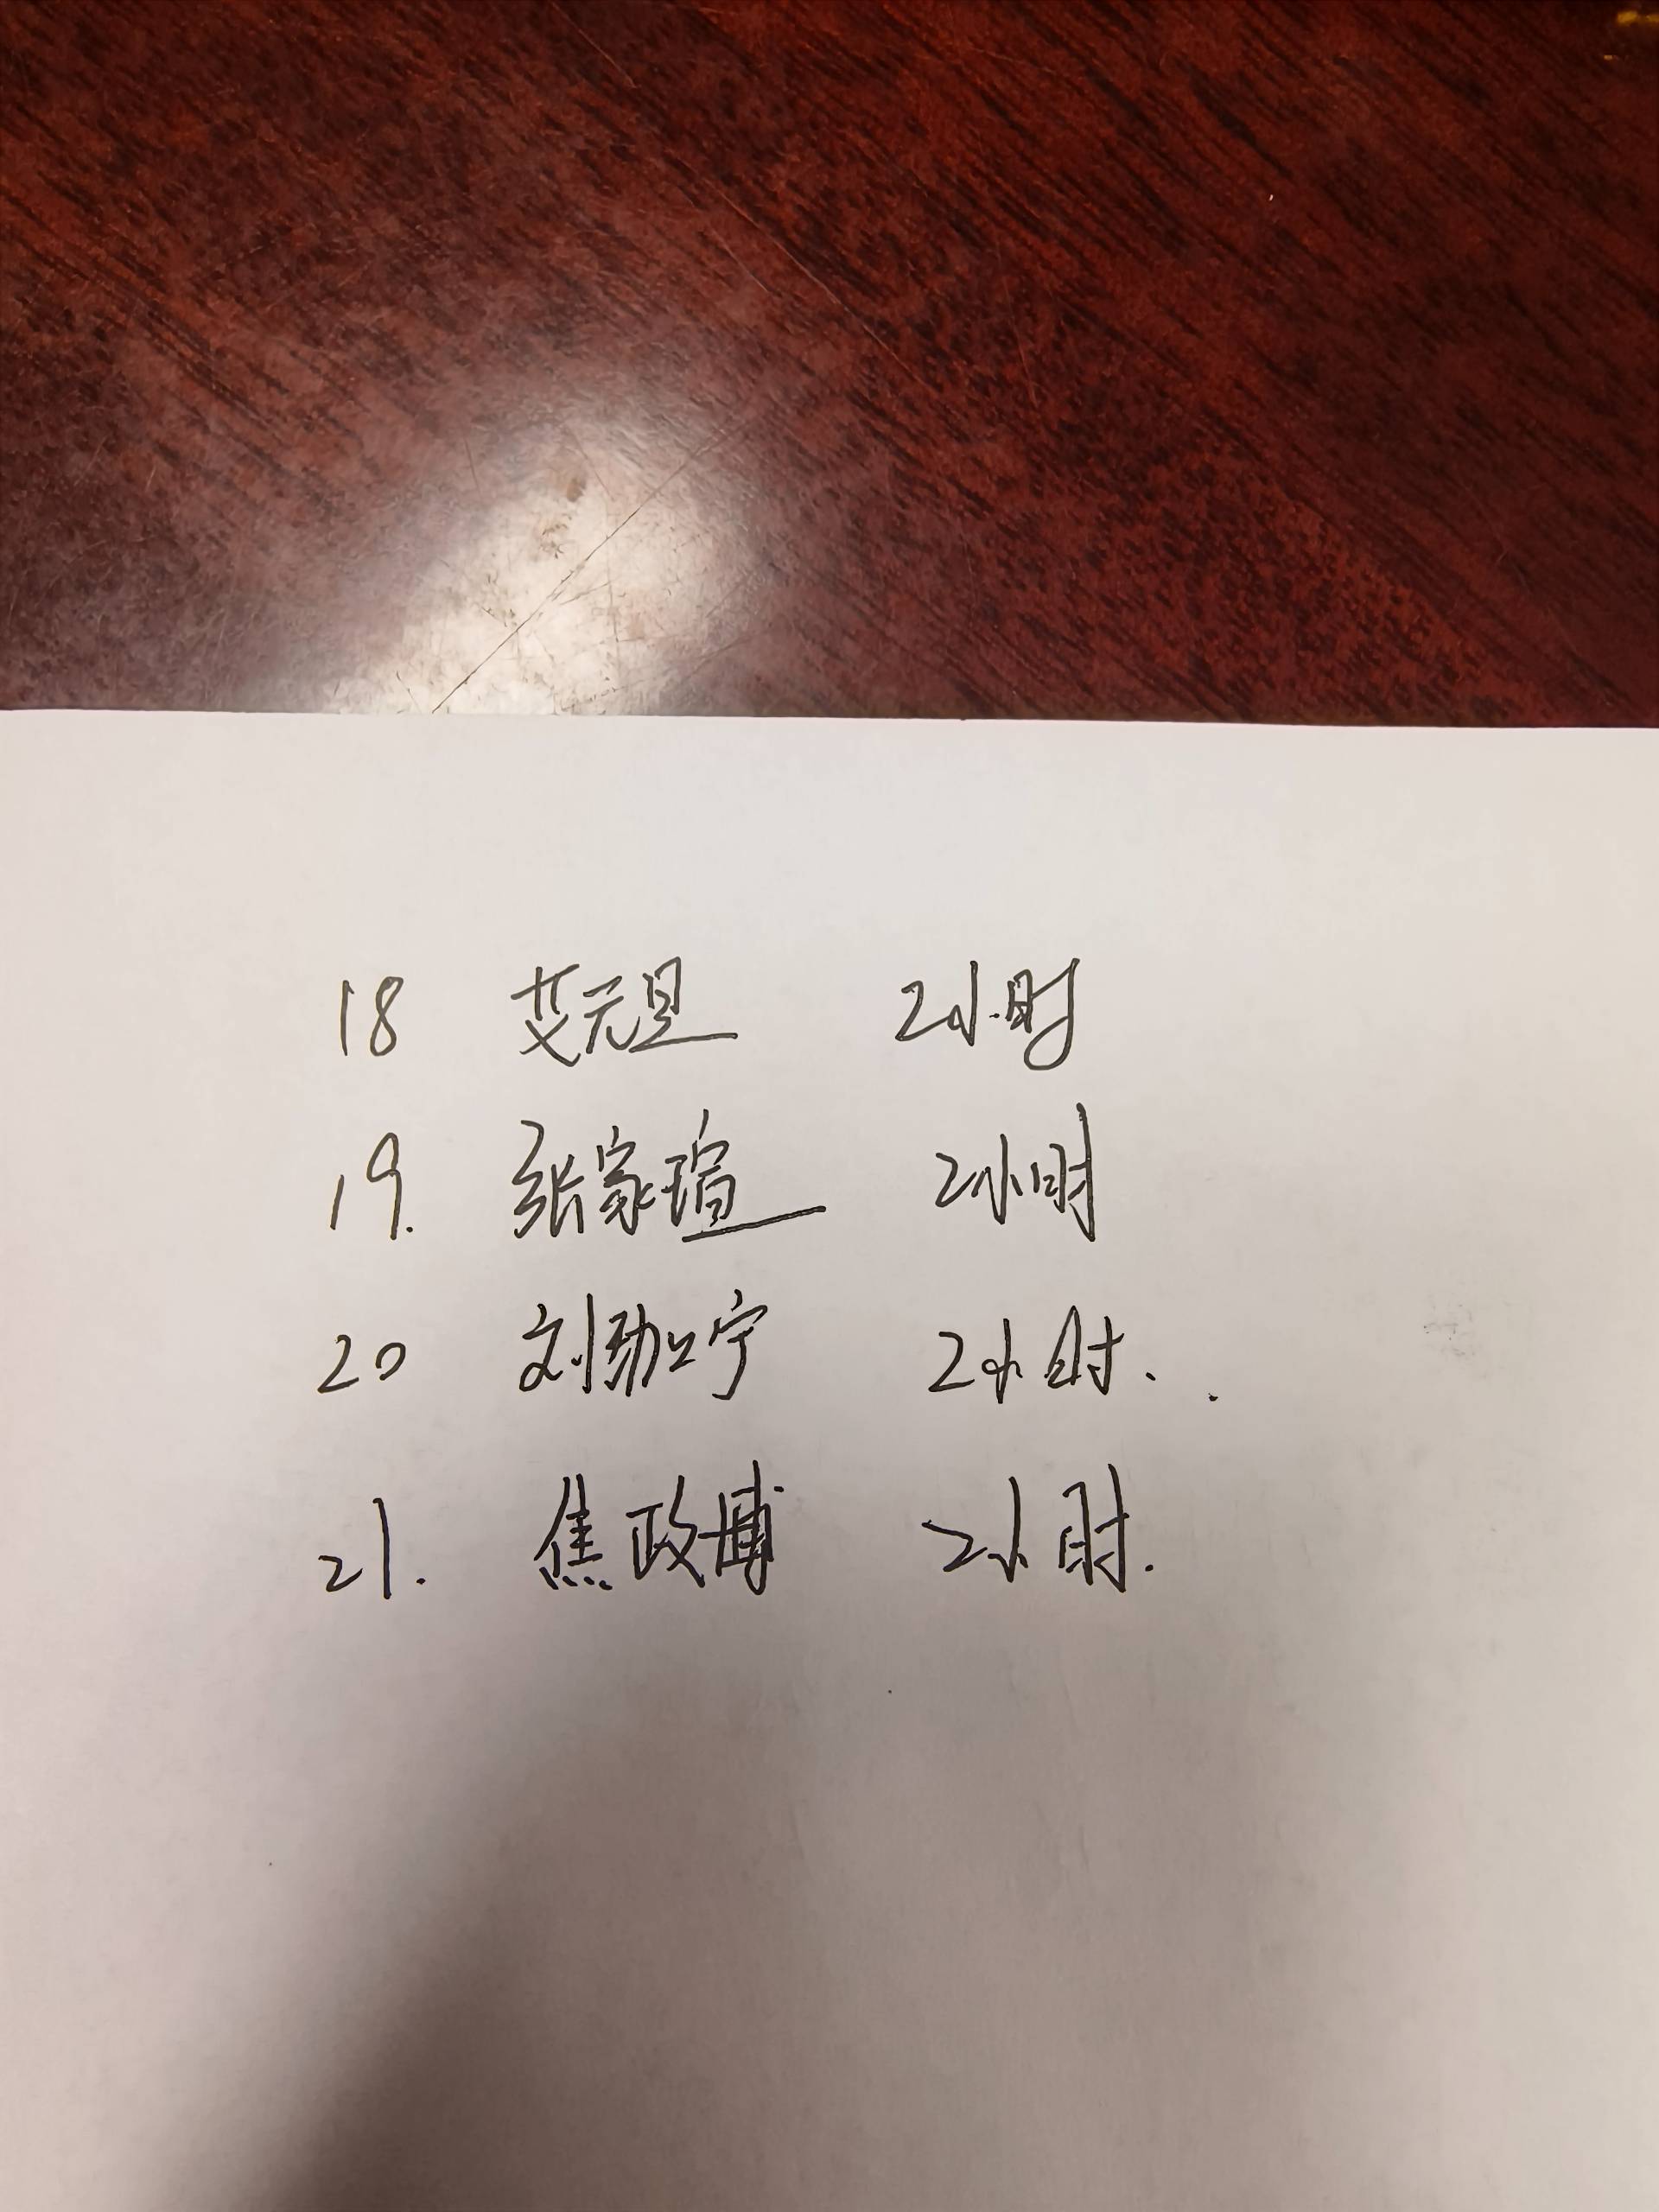 18 艾元旦 2小时
19. 张家瑄 2小时
20 刘劲宁 2小时.
21. 焦政博 2小时.